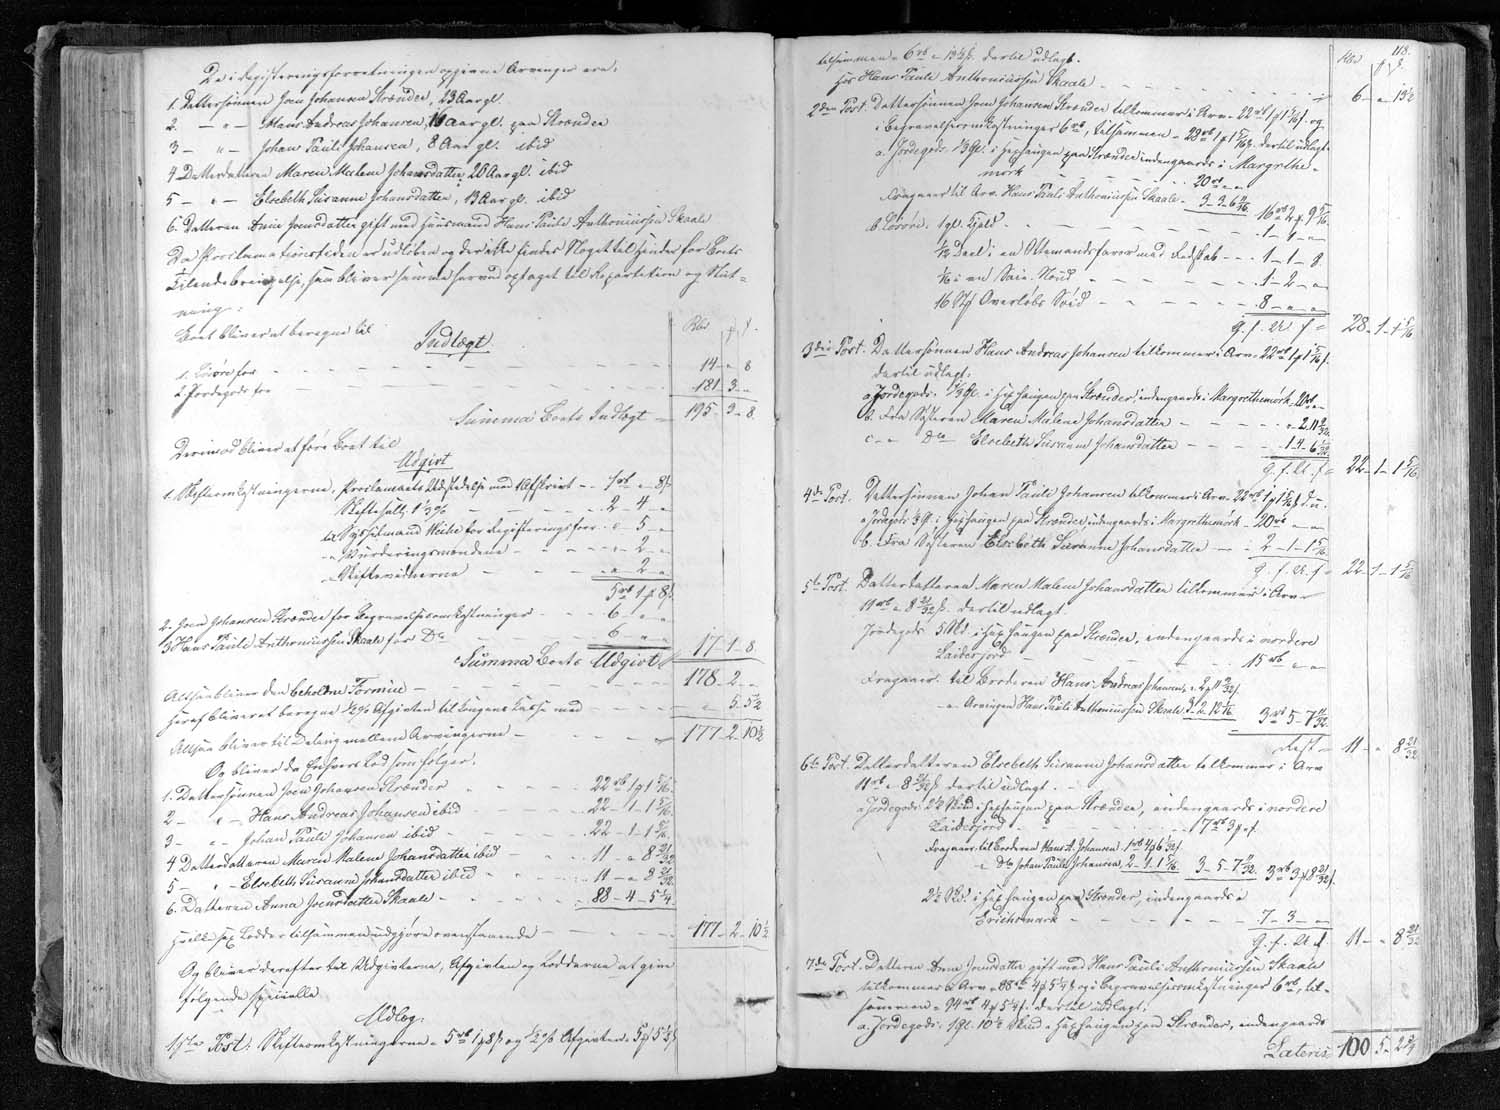 De i Registeringsforretningen opgivne Arvinger ere:
1. Dattersønnen Joen Johansen Strænder, 23 Aar gl.
2. — " — Hans Andreas Johansen, Aar gl. paa Strænder
3 — " — Johan Pauli Johansen, 8 Aar gl. ibid
4 Datterdatteren Maren Malene Johansdatter, 20 Aar gl. ibid
5 — " — Elsebeth Susanne Johansdatter, 13 Aar gl. ibid
6. Datteren Anna Joensdatter gift med Huusmand Hans Paule Anthoniussen Skaale
Da Proclamationstiden er udløben og der ikke findes Noget til Hinder for Boets
Tilendebringelse, saa bliver samme herved optaget til Repartition og Slut-
ning:
Boet bliver at beregne til
Indtægt
Rbd ß
1. Løsøre for — 14 - " 8
2. Jordegods for — 181 3 - "
Summa Boets Indtægt — 195 - 3 - 8.
Derimod bliver at føre Boet til
Udgivt
1. Skifteomkostningerne, Proclamaets Udstedelse med Afskrivt —
Skiftesalt, 1⅓ % — 2 - 4 - "
Sysselmand Weihe for Registeringsforr. " 5 - "
" Vurderingsmændene — " - 2 - "
" Skiftevidnerne — " 2 - "
5 rb 1 8 ß
2. Joen Johansen Strænder for Begravelsesomkostninger — 6 - " - "
3 Hans Pauli Anthoniussen Skaale for Do — 6 " "
17 - 1 - 8.
Summa Boets Udgivt
Altsaa bliver den beholdne Formue — 178 - 2 - "
Heraf bliver at beregne ½ % Afgivten til Kongens Kasse med — " 5 5½
Altsaa bliver til Deling mellem Arvingerne — 177 - 2 - 10½
Og bliver da Enhvers Lod som følger:
1. Dattersønnen Joen Johansen Strænder — 22 rb 1 1 5/16
2 — " — Hans Andreas Johansen ibid — 22 - 1 - 1 5/16
3 — " Johan Pauli Johansen ibid — 22 - 1 - 1 5/16
4 Datterdatteren Maren Malene Johansdatter ibid — 11 - " 8 21/32
5 — " - Elsebeth Susanne Johansdatter ibid — 11 - " 8 21/32
6. Datteren Anna Joensdatter Skaale — 88 - 4 - 5¼
hvilke sex Lodder tilsammen udgjøre ovenstaaende — 177 - 2 - 10½
Og bliver derefter til Udgivterne, Afgivten og Lodderne at give
følgende specielle
Udlæg.
1ste Post: Skifteomkostningerne 5 rb 1 8 ß og ½ % Afgivten 5 5½ ß
118.
tilsammen 6 rb " 13½ ß. dertil udlagt.
Rbd ß
hos Hans Pauli Anthoniussen Skaale — 6 - " 13½
2den Post. Dattersønnen Joen Johansen Strænder tilkommer i Arv 22 rb 1 1 5/16 ß. og
i Begravelsesomkostninger 6 rb, tilsammen 28 rb 1 1 5/16 ß. dertil udlagt
a. Jordegods i Høghaugen paa Strænder indengaards i Margrethe-
mørk — 20 rb " "
Fragaaer til Arv. Hans Pauli Anthoniussen Skaale 3 - 3 - 6
b. Løsøre: 1 gl. Kjedl — 1 - 4 - "
1/12 Deel i en Ottemandsfarer med Redskab — 1 - 1 - 8
1/16 i en Seie-Noed — 1 - 2 - "
16 Overløbs Soid — 8 - " "
g. f. Ud. f 28 - 1 - 1 5/16
3die Post. Dattersønnen Hans Andreas Johansen tilkommer i Arv 22 rb 1 1 5/16 ß.
dertil udlagt:
a Jordegods: i Høghaugen paa Strænder indengaards i Margrethemørk 20 rb
b. Fra Søsteren Maren Malene Johansdatter — " 2 11
c — " Do Elsebeth Susanne Johansdatter — 1 4 - 6
g. f. Ud. f 22 - 1 - 1 5/16
4de Post. Dattersønnen Johan Pauli Johansen tilkommer i Arv 22 rb 1 1 5/16 ß
a Jordegods i Høghaugen paa Strænder indengaards i Margrethemørk - 20 rb " "
b. Fra Søsteren Elsebeth Susanne Johansdatter — 2 - 1 - 1 5/16
g. f. Ud. f 22 - 1 - 1 5/16
5te Post. Datterdatteren Maren Malene Johansdatter tilkommer i Arv
11 rb " 8 21/32 ß. dertil udlagt.
Jordegods 5 Skd. i Høghaugen paa Strænder, indengaards i nordere
Laidesjord — 15 rb " "
Fragaaer: til Broderen Hans Andreas Johansen 2 11
" Arvingen Hans Pauli Anthoniussen Skaale 3 - 2 - 12 3 rb 5 - 7 11/32
Rest 11 - " 8 21/32
6te Post. Datterdatteren Elsebeth Susanne Johansdatter tilkommer i Arv
11 rb " 8 21/32 ß dertil udlagt.
a Jordegods: Skind i Høghaugen paa Strænder, indengaards i nordere
Laidesjord — 17 rb 3
Fragaaer til Broderen Hans A. Johansen 1 rb 4 6
" Do Johan Pauli Johansen 2 - 1. 1 5/16 3 - 5 - 7 3 rb 3 8 21/32 ß.
2½ Skd. i Høghaugen paa Strænder, indengaards i
Erichsmørk — 7 - 3 - "
g. f. Ud. f 11 - " 8 21/32
7de Post. Datteren Anna Joensdatter gift med Hans Pauli Anthoniussen Skaale
tilkommer i Arv 88 rb 4 5¼ ß og i Begravelsesomkostninger 6 rb, til-
sammen 94 rb 4 5¼ ß. dertil udlagt:
a. Jordegods: 1 gl. 10½ Skind i Høghaugen paa Strænder, indengaards
Lateris 100 5 - 2¾